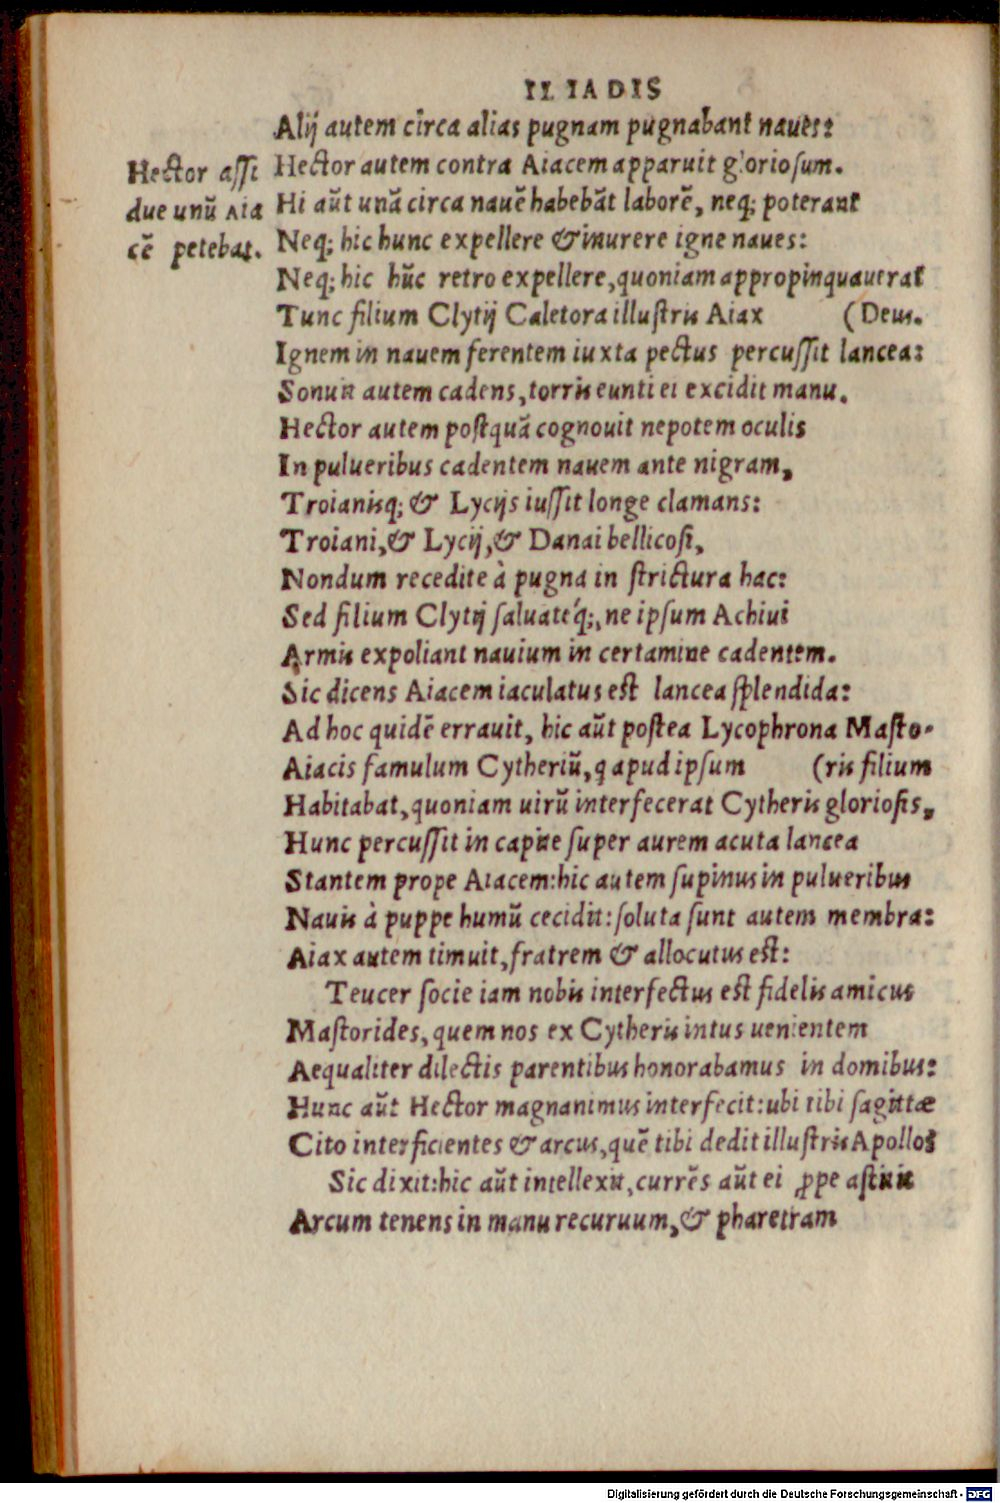 ILIADIS
Alij autem circa alias pugnam pugnabant naues:
Hector autem contra Aiacem apparuit gloriosum.
Hi aūt unā circa nauē habebāt laborē, neq; poterant
Neq; hic hunc expellere & inurere igne naues:
Neq; hic hūc retro expellere, quoniam appropinquauerat
Tunc filium Clytij Caletora illustris Aiax (Deus.
Ignem in nauem ferentem iuxta pectus percussit lancea:
Sonuit autem cadens, torris eunti ei excidit manu.
Hector autem postquā cognouit nepotem oculis
In pulueribus cadentem nauem ante nigram,
Troianisq; & Lycijs iussit longe clamans:
Troiani, & Lycij, & Danai bellicosi,
Nondum recedite à pugna in strictura hac:
Sed filium Clytij saluateq́;, ne ipsum Achiui
Armis expoliant nauium in certamine cadentem.
Sic dicens Aiacem iaculatus est lancea splendida:
Ad hoc quidē errauit, hic aūt postea Lycophrona Masto-
Aiacis famulum Cytheriū, q apud ipsum (ris filium
Habitabat, quoniam uirū interfecerat Cytheris gloriosis,
Hunc percussit in capite super aurem acuta lancea
Stantem prope Aiacem: hic autem supinus in pulueribus
Nauis à puppe humū cecidit: soluta sunt autem membra:
Aiax autem timuit, fratrem & allocutus est:
Teucer socie iam nobis interfectus est fidelis amicus
Mastorides, quem nos ex Cytheris intus uenientem
Aequaliter dilectis parentibus honorabamus in domibus:
Hunc aūt Hector magnanimus interfecit: ubi tibi sagittæ
Cito interficientes & arcus, quē tibi dedit illustris Apollo?
Sic dixit: hic aūt intellexit, currēs aūt ei ꝓpe astitit
Arcum tenens in manu recuruum, & pharetram
Hector assi
due unū Aia
cē petebat.
Digitalisierung gefördert durch die Deutsche Forschungsgemeinschaft - DFG